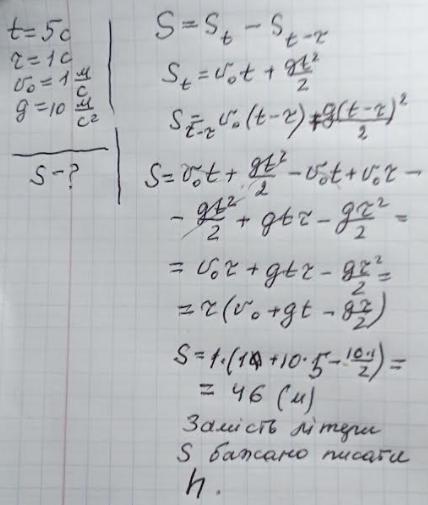 t = 5c
τ = 1c
v₀ = 1 м/с
g = 10 м/с²
S - ?
S = S_t - S_{t-τ}
S_t = v₀t + gt²/2
S_{t-τ} = v₀(t-τ) + g(t-τ)²/2
S = v₀t + gt²/2 - v₀t + v₀τ -
- gt²/2 + gtτ - gτ²/2 =
= v₀τ + gtτ - gτ²/2 =
= τ(v₀ + gt - gτ/2)
S = 1·(1 + 10·5 - 10·1/2) =
= 46 (м)
Замість літери
S бажано писати
h.